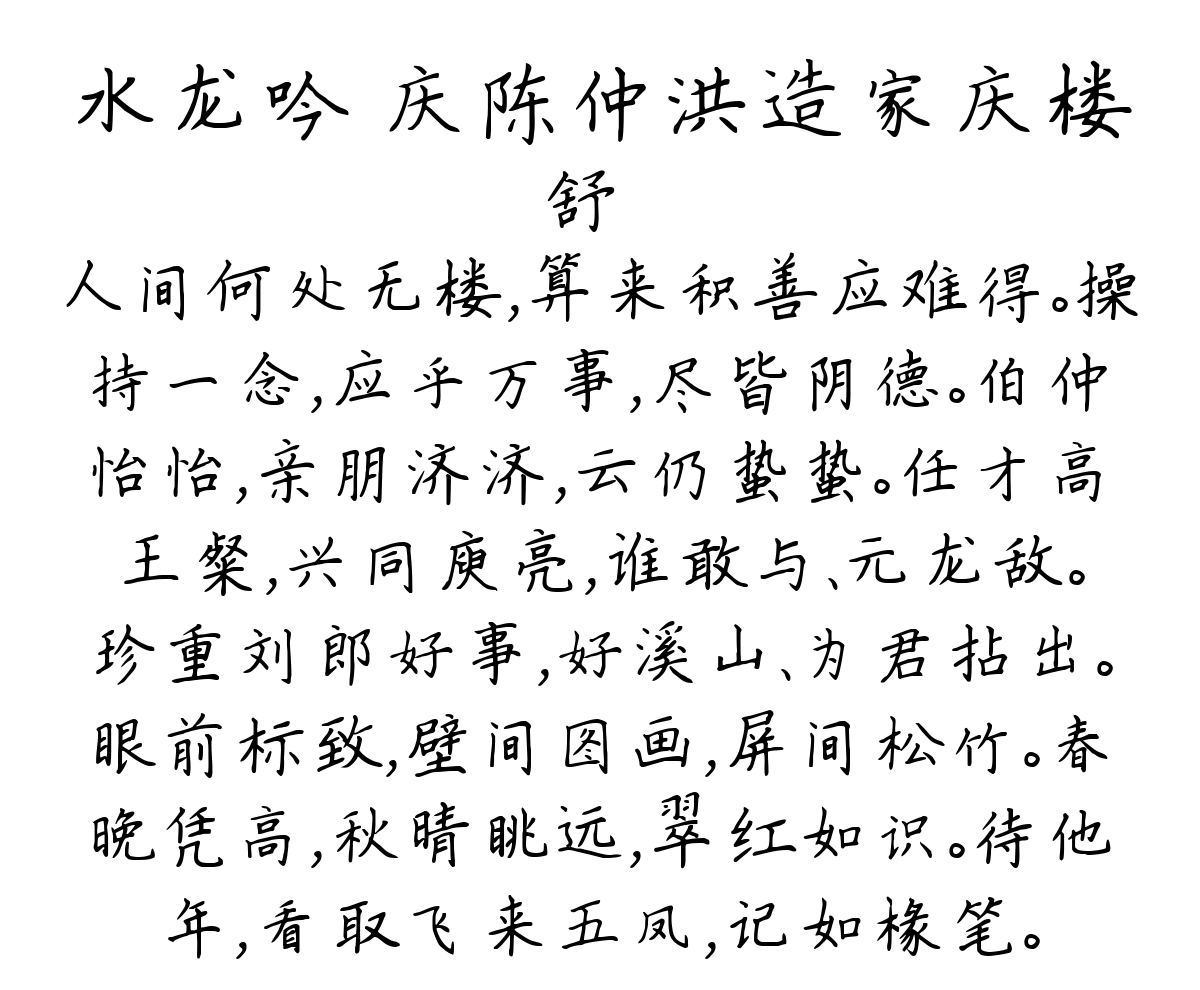 水龙吟 庆陈仲洪造家庆楼
舒
人间何处无楼,算来积善应难得。操
持一念,应乎万事,尽皆阴德。伯仲
怡怡,亲朋济济,云仍蛰蛰。任才高
王粲,兴同庾亮,谁敢与、元龙敌。
珍重刘郎好事,好溪山、为君拈出。
眼前标致,壁间图画,屏间松竹。春
晚凭高,秋晴眺远,翠红如识。待他
年,看取飞来五凤,记如椽笔。